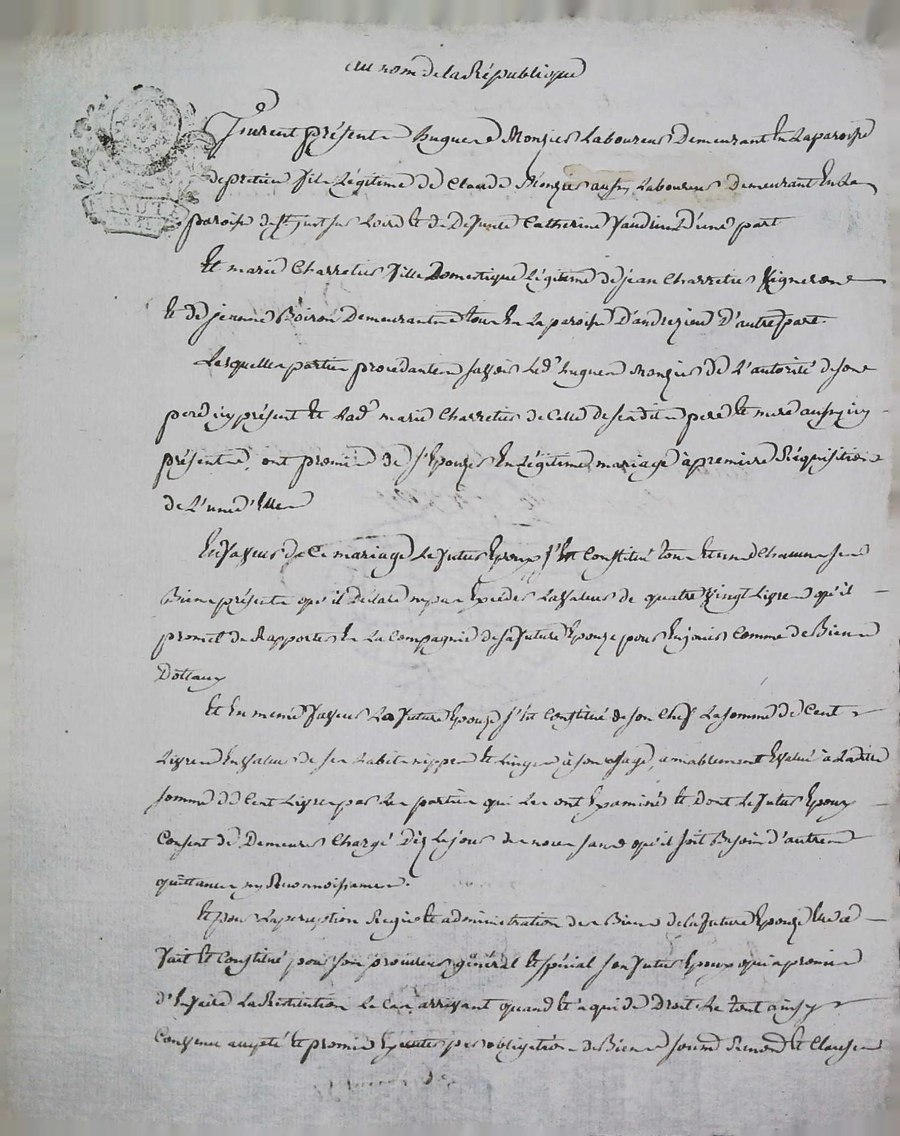 au nom de la République
furent présents hugues Monzier Laboureur Demeurant En la paroisse
de fils Légitime de Claude Monzier aussy Laboureur Demeurant En La
paroisse de St just sur Loire et de Defunte Catherine D'une part
Et marie Charretier fille Domestique Légitime de jean Charretier Vigneron
Et de jeanne Boiron Demeurants tous En La paroisse D'andrezieu D'autre part.
Lesquelles parties procedantes savoir Led. hugues Monzier de L'autorité de son
pere icy présent Et Lad. marie Charretier de Celle de sesdits pere Et mere aussy icy
présents, ont promis de s'Epouzer En Légitime mariage a premiere Réquisition
de L'une d'Elles
En faveur de Ce mariage Le futur Epoux s'Est Constitué tous Et un Chacuns ses
Biens présents qu'il Déclare n'pas Exceder La valeur de quatre vingt Livres qu'il
promet de Rapporter En La Compagnie de sa future Epouze pour En jouir Comme de Biens
Dottaux
Et En meme faveur La future Epouze s'Est Constitué de son Chef La somme de Cent
Livres En valeur de ses habits nippes Et Linges à son usage, amiablement Evalué a Ladite
somme de Cent Livres par Les parties qui Les ont Examinés Et dont Le futur Epoux
Consent de Demeurer Chargé Dez Le jour des noces sans qu'il soit Besoin d'autres
quittances ny Reconnoissances.
Et pour La perception Regie Et administration des Biens de la future Epouze Elle a
fait Et Constitué pour son procureur général Et spécial son futur Epoux qui a promis
d'En faire La Restitution Le Cas arrivant quand Et a qui de Droit Le tout ainsy
Convenu accepté Et promis Executer par obligation de Biens soumis Renond. Et Clauses